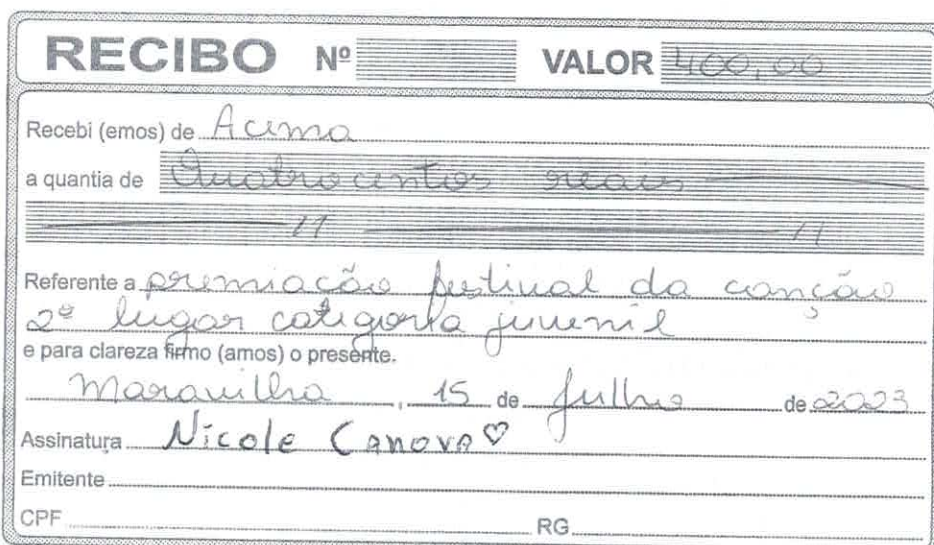 RECIBO Nº VALOR 400,00
Recebi (emos) de Acima
a quantia de Quatrocentos reais
Referente a premiação festival da canção
2º lugar categoria juvenil
e para clareza firmo (amos) o presente.
Maravilha, 15 de Julho de 2023
Assinatura Nicole Canova ♡
Emitente
CPF RG